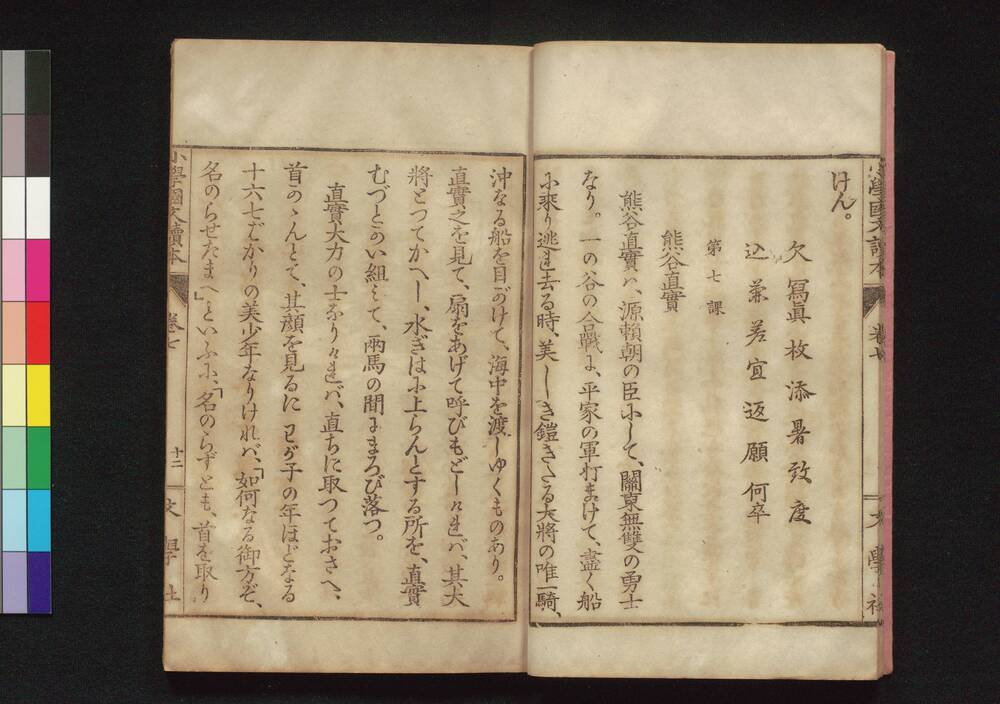 けん。
欠寫眞枚添暑致度
込兼差宜返願何卒
第七課
熊谷直實
熊谷直實ハ、源頼朝の臣にして、關東無雙の勇士
なり。一の谷の合戰に、平家の軍打まけて、盡く船
に乘り逃れ去る時、美しき鎧きたる大將の唯一騎、
沖なる船を目がけて、海中を渡しゆくものあり。
直實之を見て、扇をあげて呼びもどしけれバ、其大
將とつてかへし、水ぎはに上らんとする所を、直實
むづとかい組みて、兩馬の間にまろび落つ。
直實大力の士なりけれバ、直ちに取つておさへ、
首かゝんとて、其顔を見るに、わが子の年ほどなる
十六七ばかりの美少年なりけれバ、「如何なる御方ぞ、
名のらせたまへ」といふに、「名のらずとも、首を取り
小學國文讀本
卷七
十二
文學社